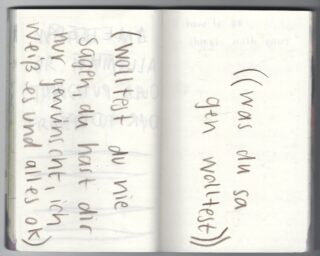 ((was du sa
gen wolltest))
(wolltest du nie
sagen, du hast dir
nur gewünscht, ich
weiß es und alles ok)